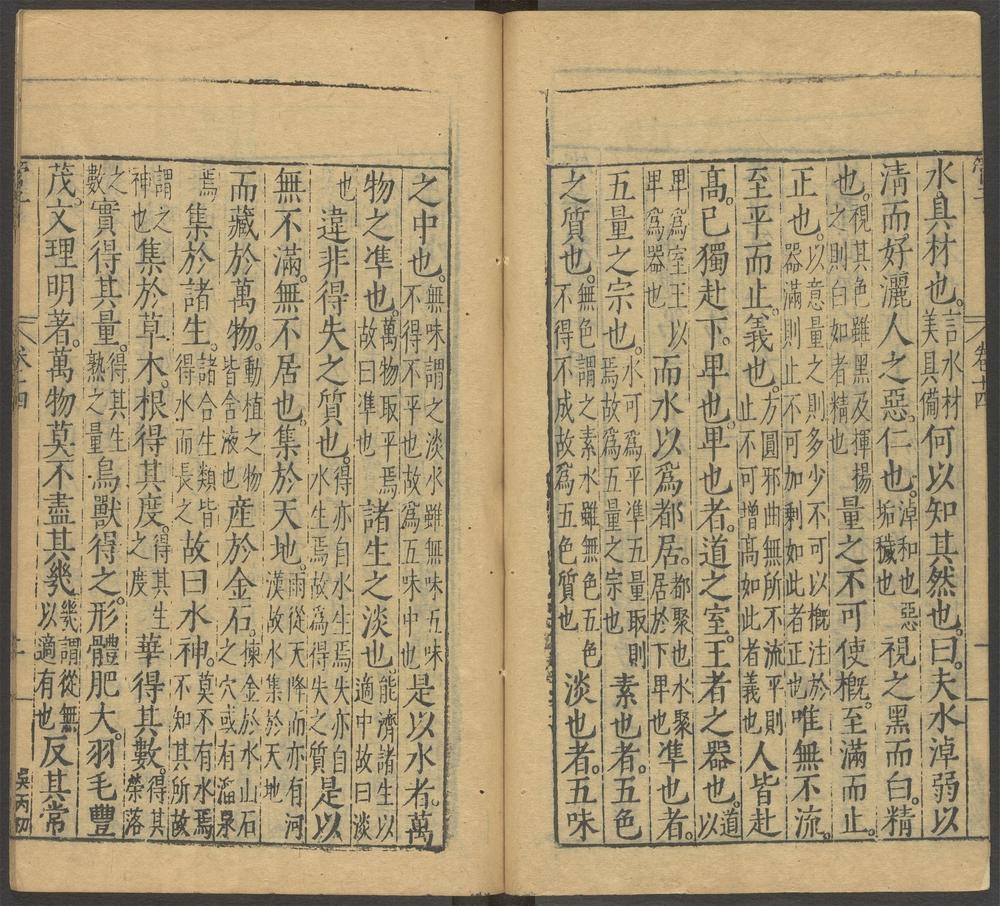 水具材也。言水材美具備何以知其然也。曰。夫水淖弱以
清而好灑人之惡。仁也。淖和也惡垢穢也視之黑而白。精
也。視其色雖黑及揮楊之則白如者精也量之不可使概。至滿而止。
正也。以意量之則多少不可以概注於器滿則止不可加剩如此者正也唯無不流。
至平而止。義也。方圓邪曲無所不流平則止不可增高如此者義也人皆赴
高。已獨赴下。卑也。卑也者。道之室。王者之器也。道以
卑爲室王以卑爲器也而水以爲都居。都聚也水聚居於下卑也凖也者。
五量之宗也。水可爲平凖五量取則焉故爲五量之宗也素也者。五色
之質也。無色謂之素水雖無色五色不得不成故爲五色質也淡也者。五味
卷十四
之中也。無味謂之淡水雖無味五味不得不平也故爲五味中也是以水者。萬
物之凖也。萬物取平焉故曰凖也諸生之淡也能濟諸生以適中故曰淡
也違非得失之質也。得亦自水生焉失亦自水生焉故爲得失之質是以
無不滿。無不居也。集於天地。雨從天降而亦有河漢故水集於天地
而藏於萬物。動植之物皆含液也産於金石。揀金於水山石之穴或有溜泉
焉集於諸生。諸合生類皆得水而長之故曰水神。莫不有水焉不知其所故
謂之神也集於草木。根得其度。得其生之度華得其數。得其榮落
之數實得其量。得其生熟之量鳥獸得之。形體肥大。羽毛豐
茂。文理明著。萬物莫不盡其幾幾謂從無以適有也反其常
吳丙刀